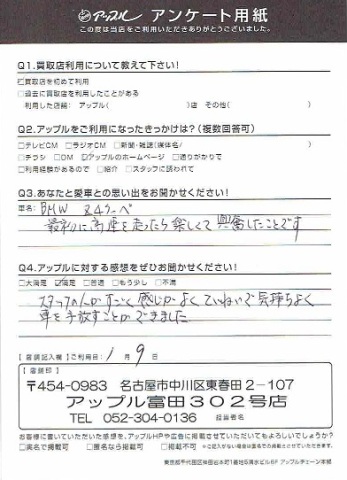 アップル アンケート用紙
この度は当店をご利用いただきありがとうございました。
Q1.買取店利用について教えて下さい!
☑買取店を初めて利用
□過去に買取店を利用したことがある
利用した店舗: アップル( )店 その他( )
Q2.アップルをご利用になったきっかけは?(複数回答可)
□テレビCM □ラジオCM □新聞・雑誌(媒体名/ )
□チラシ □DM ☑アップルのホームページ □通りがかりで
□利用経験があるので □紹介 □スタッフに誘われて
Q3.あなたと愛車との思い出をお聞かせください!
車名: BMW Z4クーペ
最初に高速を走ったら楽しくて興奮したことです
Q4.アップルに対する感想をぜひお聞かせください!
□大満足 ☑満足 □普通 □もう少し □不満
スタッフの人がすごく感じがよくていねいで気持ちよく
車を手放すことができました
【店舗記入欄】ご利用日: 1月9日
【店舗印】
〒454-0983 名古屋市中川区東春田2-107
アップル富田302号店
TEL 052-304-0136 担当者名
お客様に書いていただいた感想を、アップルHPや広告に掲載させていただいてもよろしいでしょうか?
□実名で掲載可 □匿名なら掲載可 □掲載不可